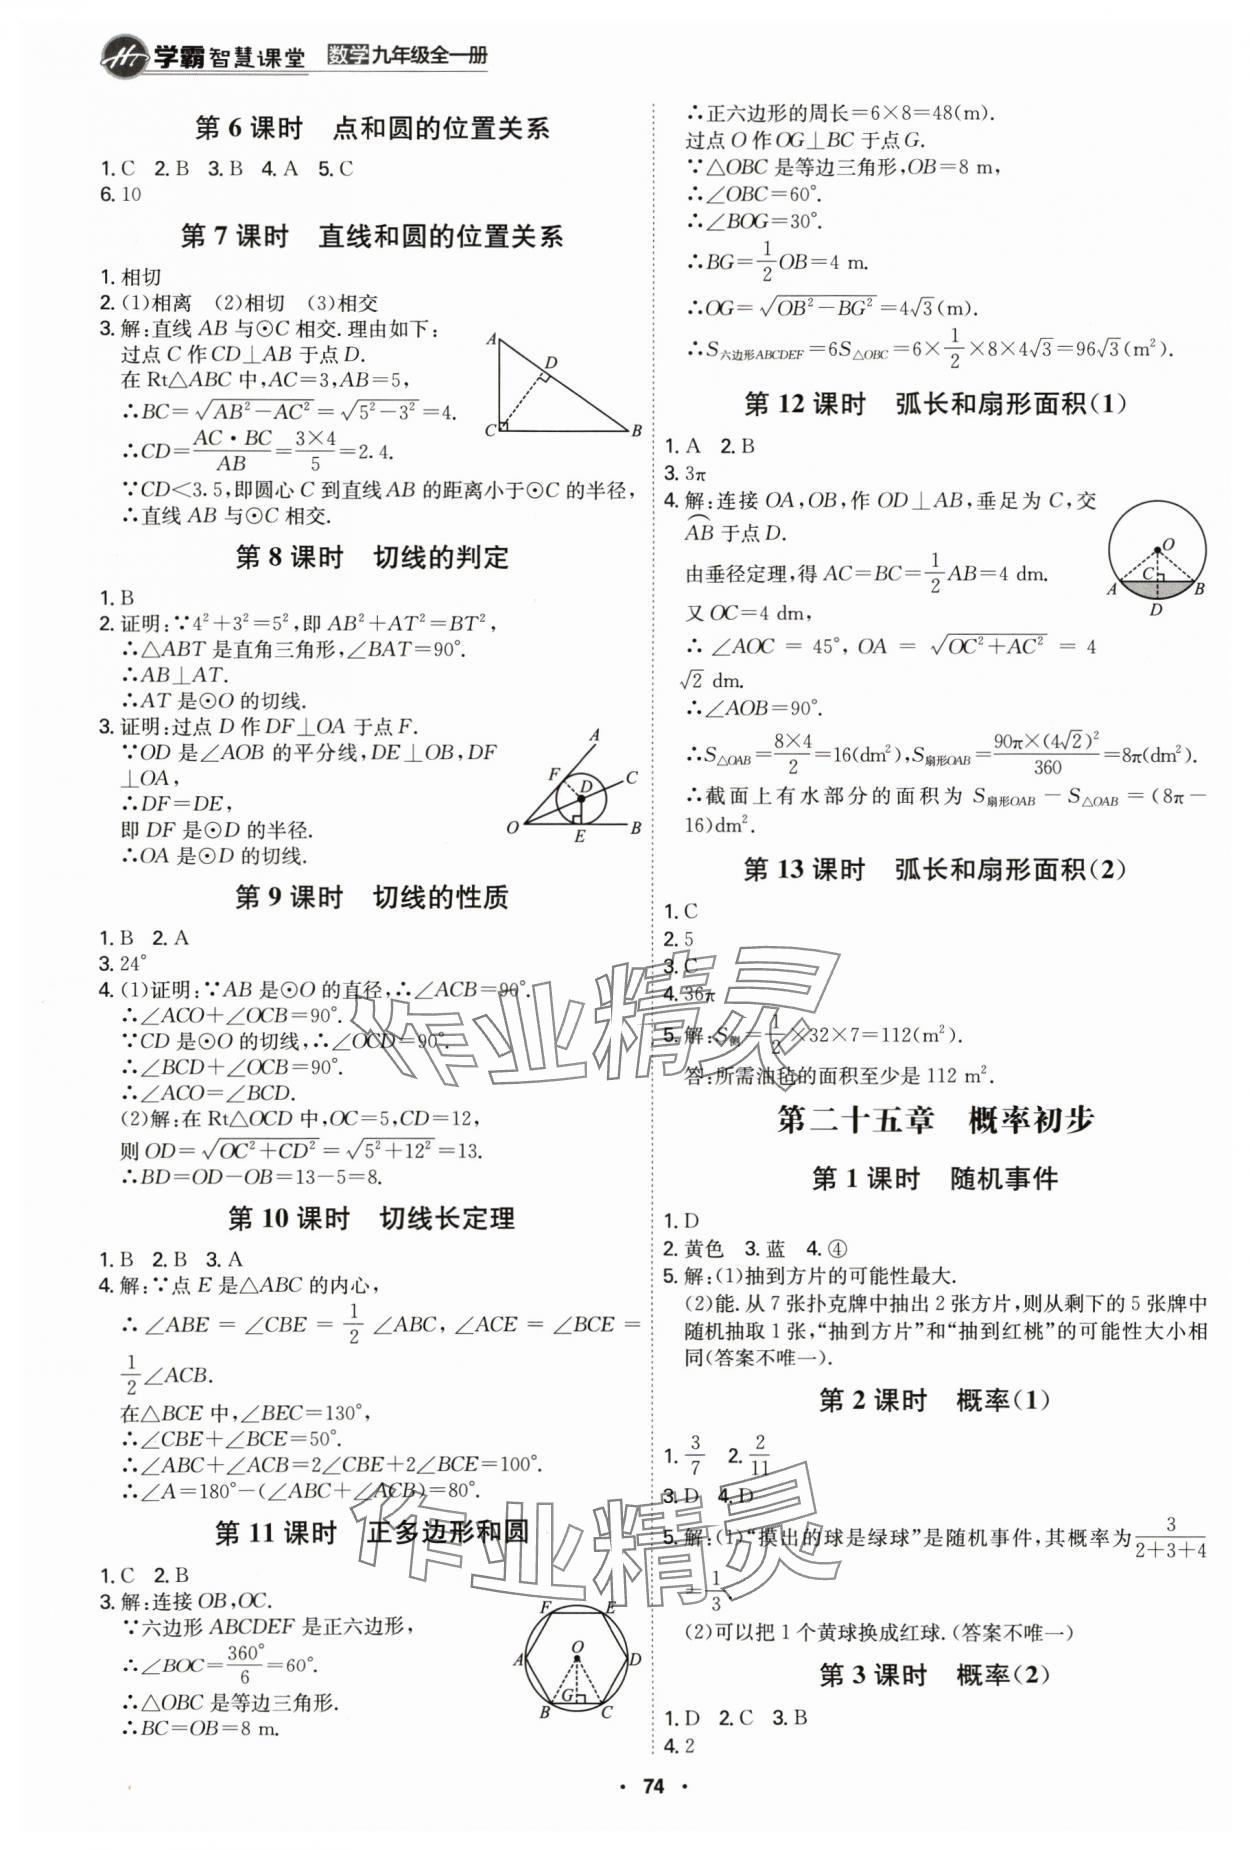 学霸智慧课堂 数学九年级全一册
第6课时 点和圆的位置关系
1.C 2.B 3.B 4.A 5.C
6.10
第7课时 直线和圆的位置关系
1.相切
2.(1)相离 (2)相切 (3)相交
3.解:直线AB与⊙C相交.理由如下:
过点C作CD⊥AB于点D.
在Rt△ABC中,AC=3,AB=5,
∴BC=√(AB²-AC²)=√(5²-3²)=4.
∴CD=AC·BC/AB=3×4/5=2.4.
∵CD<3.5,即圆心C到直线AB的距离小于⊙C的半径,
∴直线AB与⊙C相交.
A
D
C
B
第8课时 切线的判定
1.B
2.证明:∵4²+3²=5²,即AB²+AT²=BT²,
∴△ABT是直角三角形,∠BAT=90°.
∴AB⊥AT.
∴AT是⊙O的切线.
3.证明:过点D作DF⊥OA于点F.
∵OD是∠AOB的平分线,DE⊥OB,DF
⊥OA,
∴DF=DE,
即DF是⊙D的半径.
∴OA是⊙D的切线.
A
F
D
C
O
E
B
第9课时 切线的性质
1.B 2.A
3.24°
4.(1)证明:∵AB是⊙O的直径,∴∠ACB=90°.
∴∠ACO+∠OCB=90°.
∵CD是⊙O的切线,∴∠OCD=90°.
∴∠BCD+∠OCB=90°.
∴∠ACO=∠BCD.
(2)解:在Rt△OCD中,OC=5,CD=12,
则OD=√(OC²+CD²)=√(5²+12²)=13.
∴BD=OD-OB=13-5=8.
第10课时 切线长定理
1.B 2.B 3.A
4.解:∵点E是△ABC的内心,
∴∠ABE=∠CBE=1/2∠ABC,∠ACE=∠BCE=
1/2∠ACB.
在△BCE中,∠BEC=130°,
∴∠CBE+∠BCE=50°.
∴∠ABC+∠ACB=2∠CBE+2∠BCE=100°.
∴∠A=180°-(∠ABC+∠ACB)=80°.
第11课时 正多边形和圆
1.C 2.B
3.解:连接OB,OC.
∵六边形ABCDEF是正六边形,
∴∠BOC=360°/6=60°.
∴△OBC是等边三角形.
∴BC=OB=8 m.
F
E
A
O
D
G
B
C
∴正六边形的周长=6×8=48(m).
过点O作OG⊥BC于点G.
∵△OBC是等边三角形,OB=8 m,
∴∠OBC=60°.
∴∠BOG=30°.
∴BG=1/2OB=4 m.
∴OG=√(OB²-BG²)=4√3(m).
∴S六边形ABCDEF=6S△OBC=6×1/2×8×4√3=96√3(m²).
第12课时 弧长和扇形面积(1)
1.A 2.B
3.3π
4.解:连接OA,OB,作OD⊥AB,垂足为C,交
⌒AB于点D.
由垂径定理,得AC=BC=1/2AB=4 dm.
又OC=4 dm,
∴∠AOC=45°,OA=√(OC²+AC²)=4
√2 dm.
∴∠AOB=90°.
∴S△OAB=8×4/2=16(dm²),S扇形OAB=90π×(4√2)²/360=8π(dm²).
∴截面上有水部分的面积为S扇形OAB-S△OAB=(8π-
16)dm².
O
A
C
B
D
第13课时 弧长和扇形面积(2)
1.C
2.5
3.C
4.36π
5.解:S侧=1/2×32×7=112(m²).
答:所需油毡的面积至少是112 m².
第二十五章 概率初步
第1课时 随机事件
1.D
2.黄色 3.蓝 4.④
5.解:(1)抽到方片的可能性最大.
(2)能.从7张扑克牌中抽出2张方片,则从剩下的5张牌中
随机抽取1张,“抽到方片”和“抽到红桃”的可能性大小相
同(答案不唯一).
第2课时 概率(1)
1.3/7 2.2/11
3.D 4.D
5.解:(1)“摸出的球是绿球”是随机事件,其概率为3/(2+3+4)
=1/3.
(2)可以把1个黄球换成红球.(答案不唯一)
第3课时 概率(2)
1.D 2.C 3.B
4.2
作业精灵
作业精灵
·74·